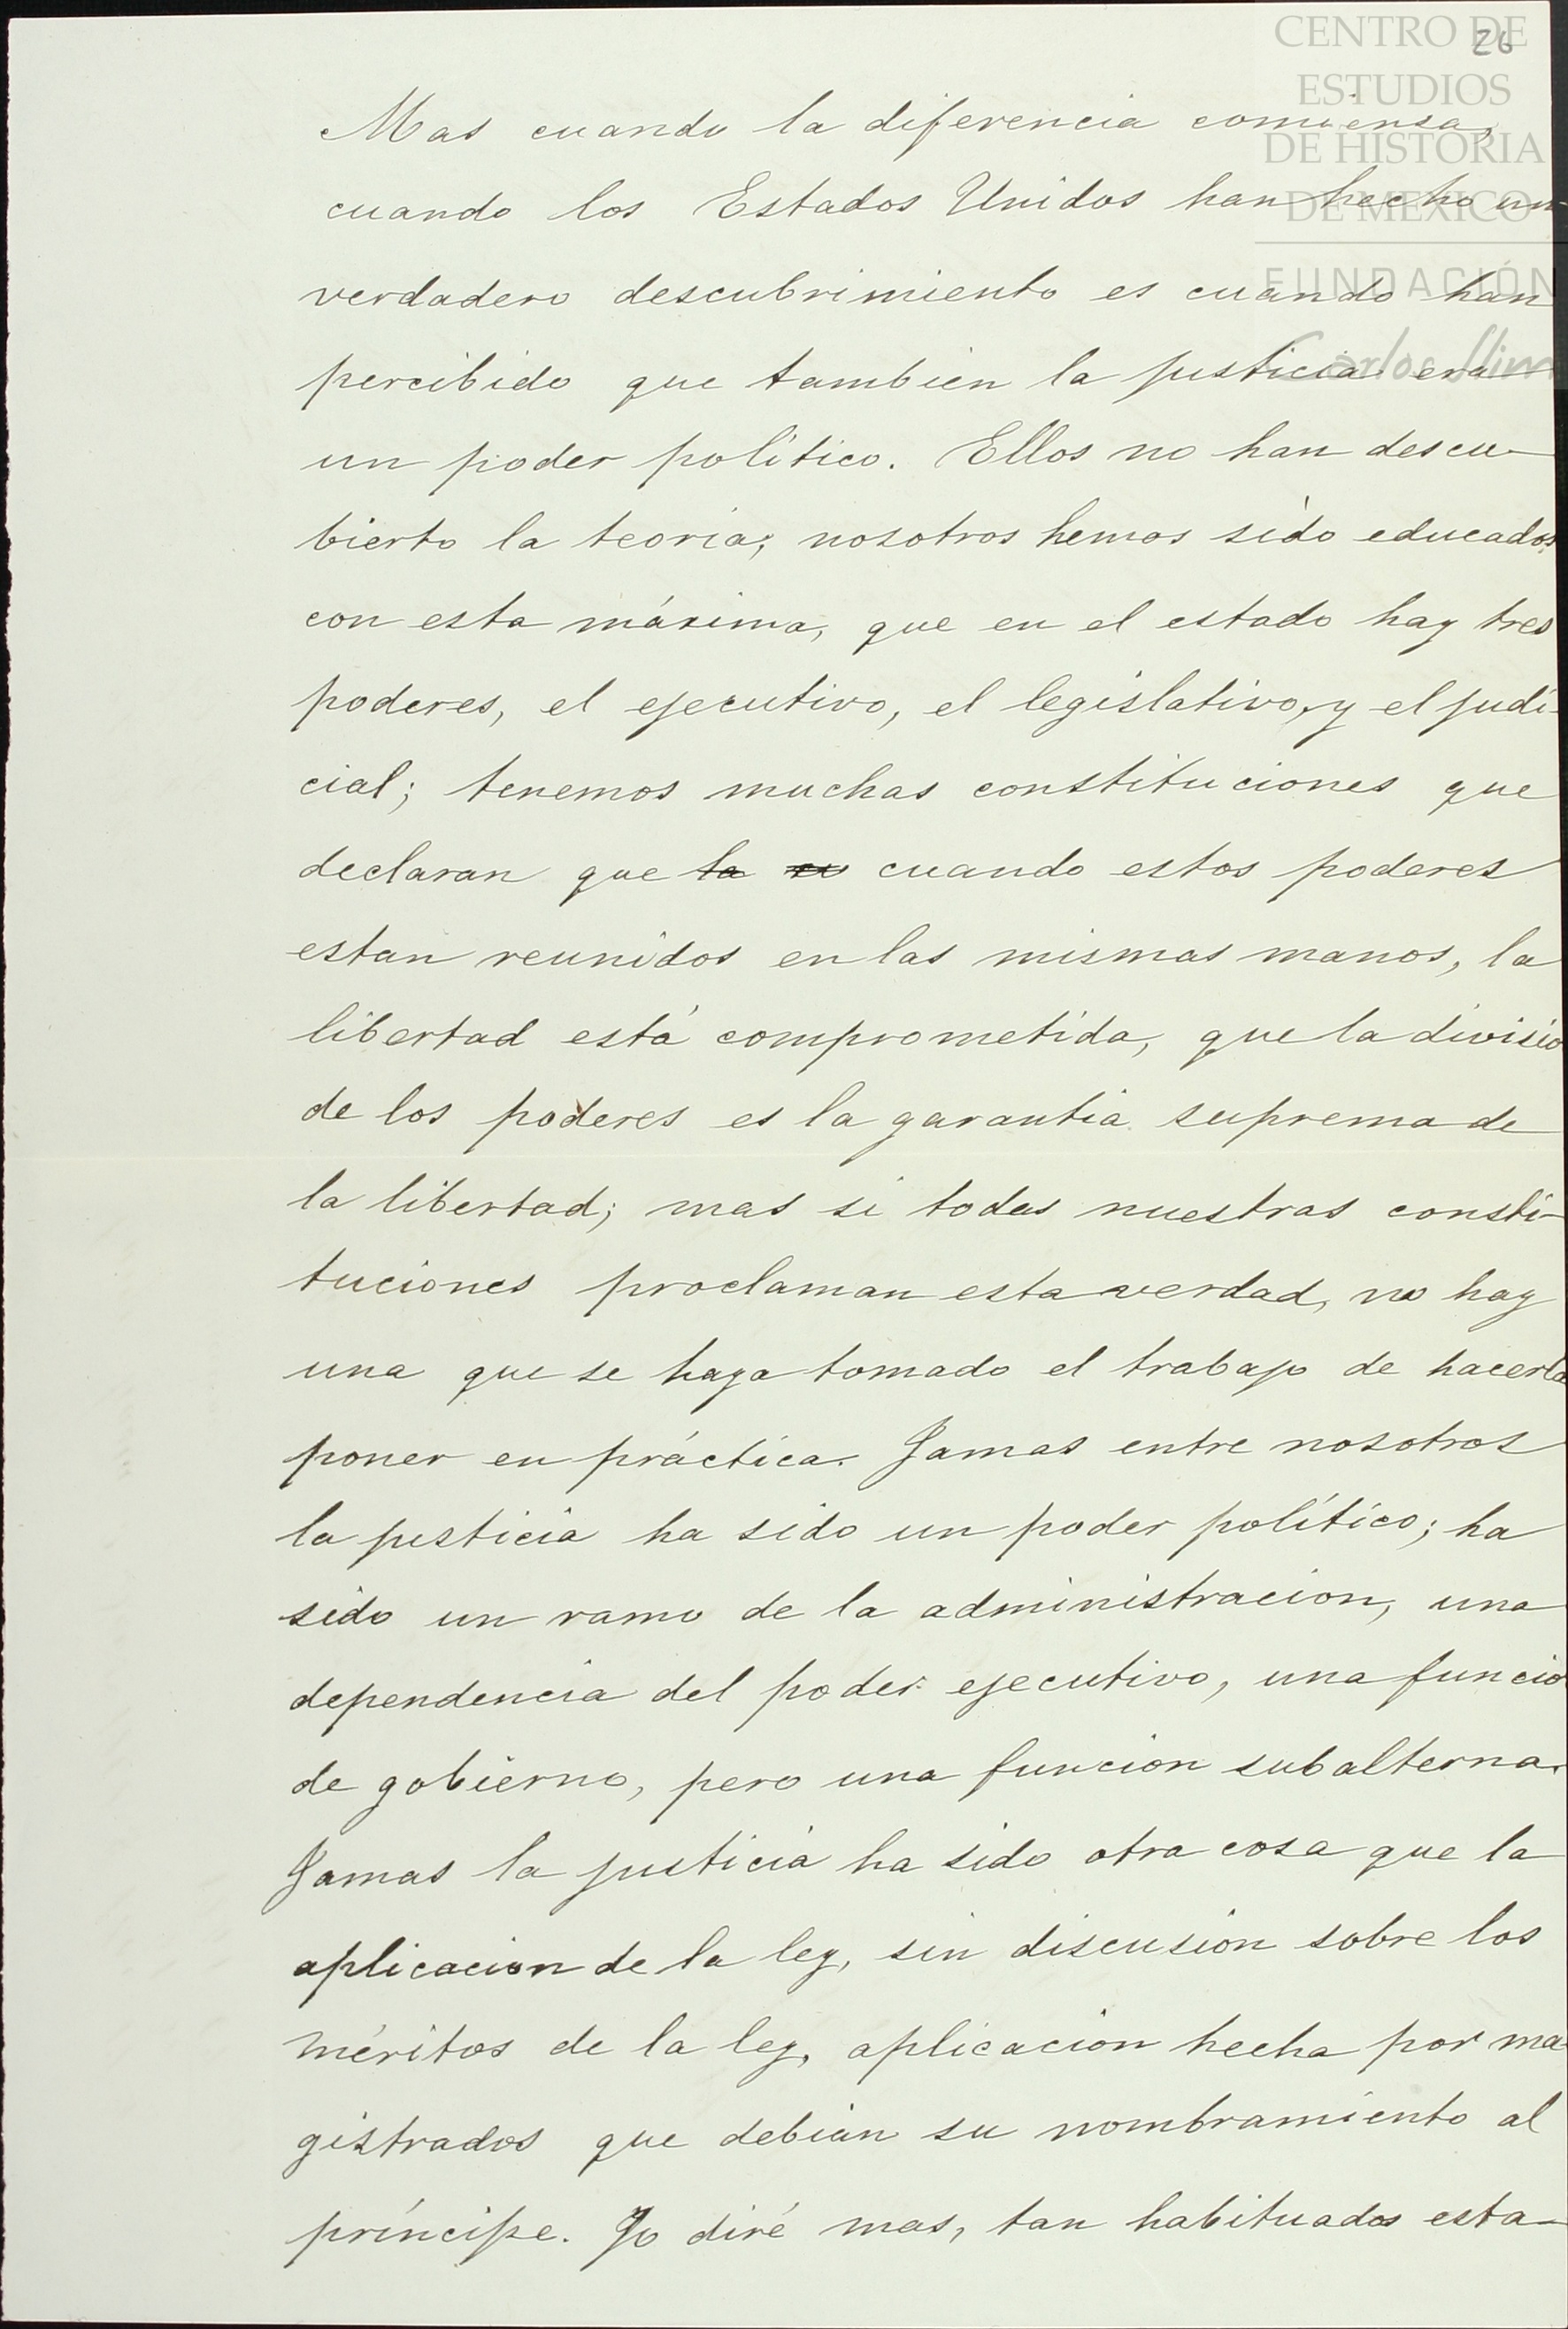 CENTRO DE
26
ESTUDIOS
DE HISTORIA
DE MEXICO
FUNDACIÓN
Carlos Slim
Mas cuando la diferencia comiensa,
cuando los Estados Unidos han hecho un
verdadero descubrimiento es cuando han
percibido que tambien la justicia era
un poder político. Ellos no han descu-
bierto la teoria; nosotros hemos sido educados
con esta máxima, que en el estado hay tres
poderes, el ejecutivo, el legislativo, y el judi-
cial; tenemos muchas constituciones que
declaran que la es cuando estos poderes
estan reunidos en las mismas manos, la
libertad está comprometida, que la divisio
de los poderes es la garantia suprema de
la libertad; mas si todas nuestras consti-
tuciones proclaman esta verdad, no hay
una que se haya tomado el trabajo de hacerla
poner en práctica. Jamas entre nosotros
la justicia ha sido un poder político; ha
sido un ramo de la administracion, una
dependencia del poder ejecutivo, una funcio
de gobierno, pero una funcion subalterna.
Jamas la justicia ha sido otra cosa que la
aplicacion de la ley, sin discusion sobre los
méritos de la ley, aplicacion hecha por ma-
gistrados que debian su nombramiento al
príncipe. Yo diré mas, tan habituados esta-